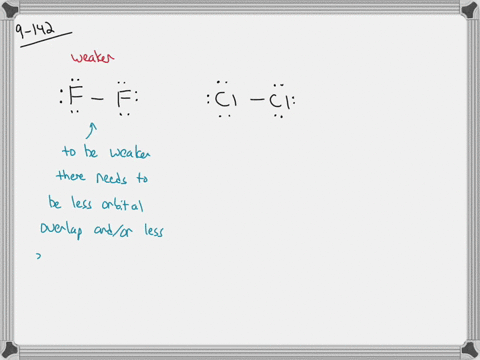 9-142
weaker
:F̈ – F̈: :C̈l – C̈l:
to be weaker
there needs to
be less orbital
overlap and/or less